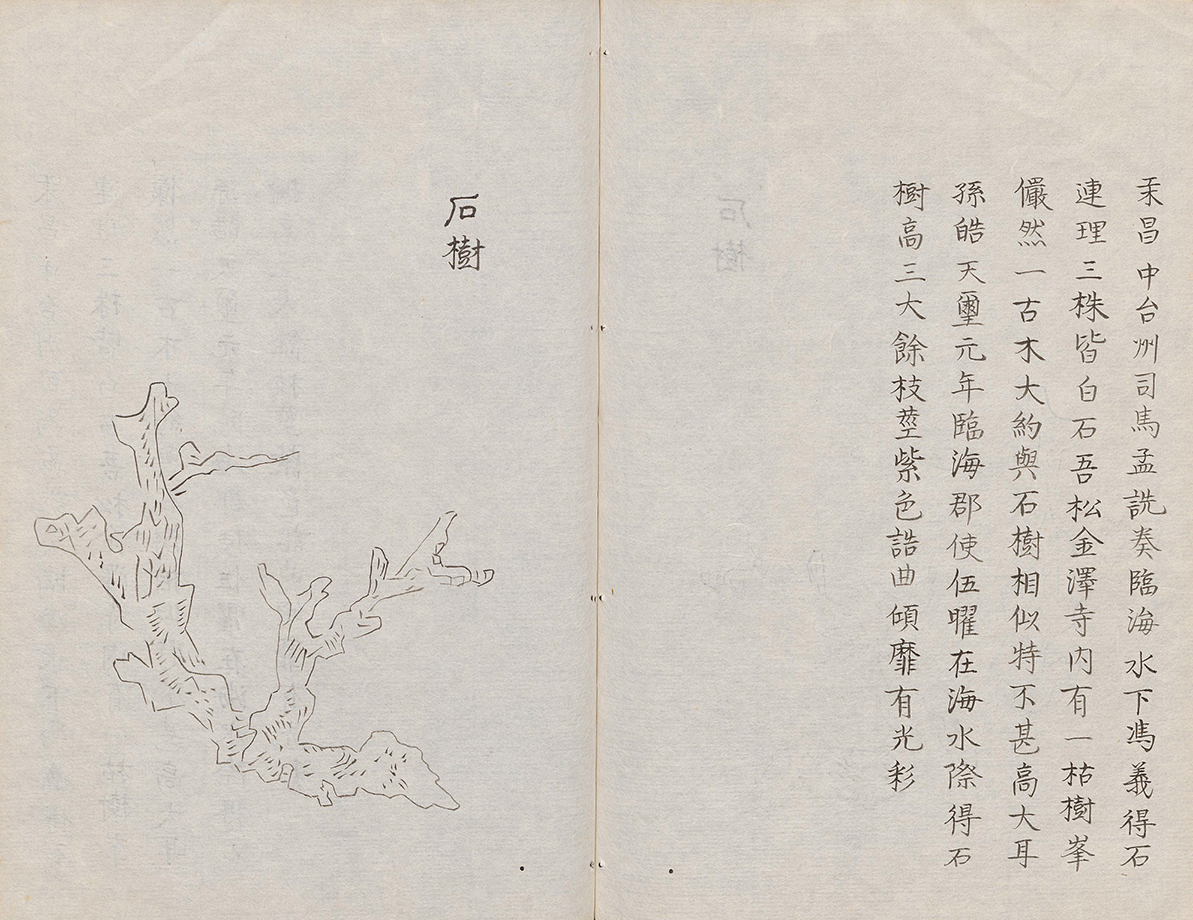 汞昌中台州司馬孟詵奏臨海水下馮義得石
連理三株皆白石吾松金澤寺内有一枯樹峯
儼然一古木大約與石樹相似特不甚高大耳
孫皓天璽元年臨海郡使伍曜在海水際得石
樹高三大餘枝莖紫色誥曲傾靡有光彩
石樹